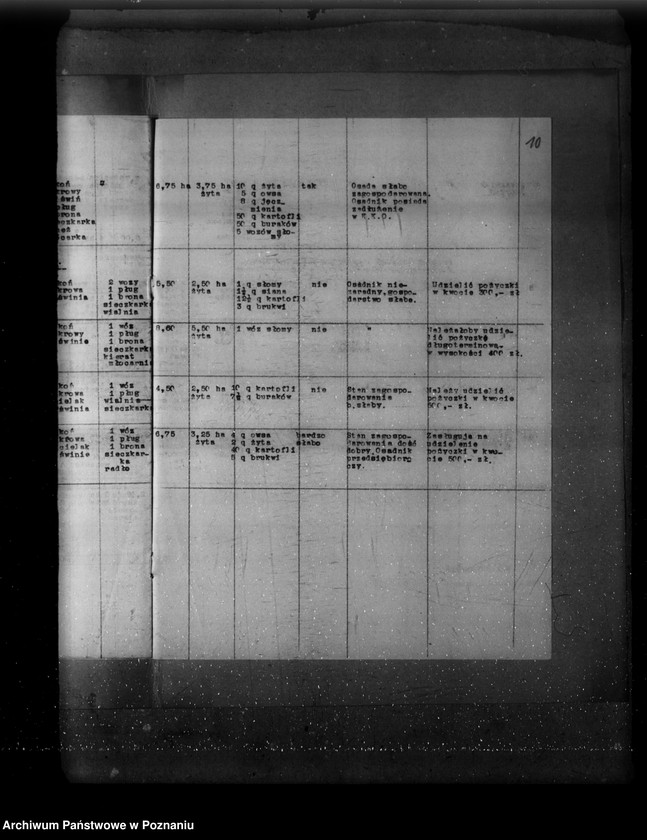 10
koń
krowy
świń
pług
brona
eczkarka
ocarka
6,75 ha 3,75 ha żyta
10 q żyta
5 q owsa
8 q jęcz_
mienia
50 q kartofli
50 q buraków
5 wozów sło-
my
tak
Osada słabo
zagospodarowana.
Osadnik posiada
zadłużenie
w K.K.O.
koń
krowa
świnia
2 wozy
1 pług
1 brona
sieczkarka
wialnia
5,50
2,50 ha
żyta
1 q słomy
1½ q siana
12½ q kartofli
3 q brukwi
nie
Osadnik nie-
zaradny,gospo-
darstwo słabe.
Udzielić pożyczki
w kwocie 300,- zł
koń
krowy
świnie
1 wóz
1 pług
1 brona
sieczkarka
kierat
młocarnia
8,60
5,50 ha
żyta
1 wóz słomy
nie
"
Należałoby udzie-
lić pożyczkę
długoterminową_
w wysokości 400 zł.
koń
krowa
ielak
świnia
1 wóz
1 pług
wialnie
sieczkarka
4,50
2,50 ha
żyta
10 q kartofli
7½ q buraków
nie
Stan zagospo-
darowania
b.słaby.
Należy udzielić
pożyczki w kwocie
500,- zł.
koń
krowa
ielak
świnie
1 wóz
1 pług
1 brona
sieczkar-
ka
radło
6,75
3,25 ha
żyta
4 q owsa
2 q żyta
40 q kartofli
5 q brukwi
bardzo
słabo
Stan zagospo-
darowania dość
dobry.Osadnik
przedsiębior
czy.
Zasługuje na
udzielenie
pożyczki w kwo-
cie 500,- zł.
Archiwum Państwowe w Poznaniu